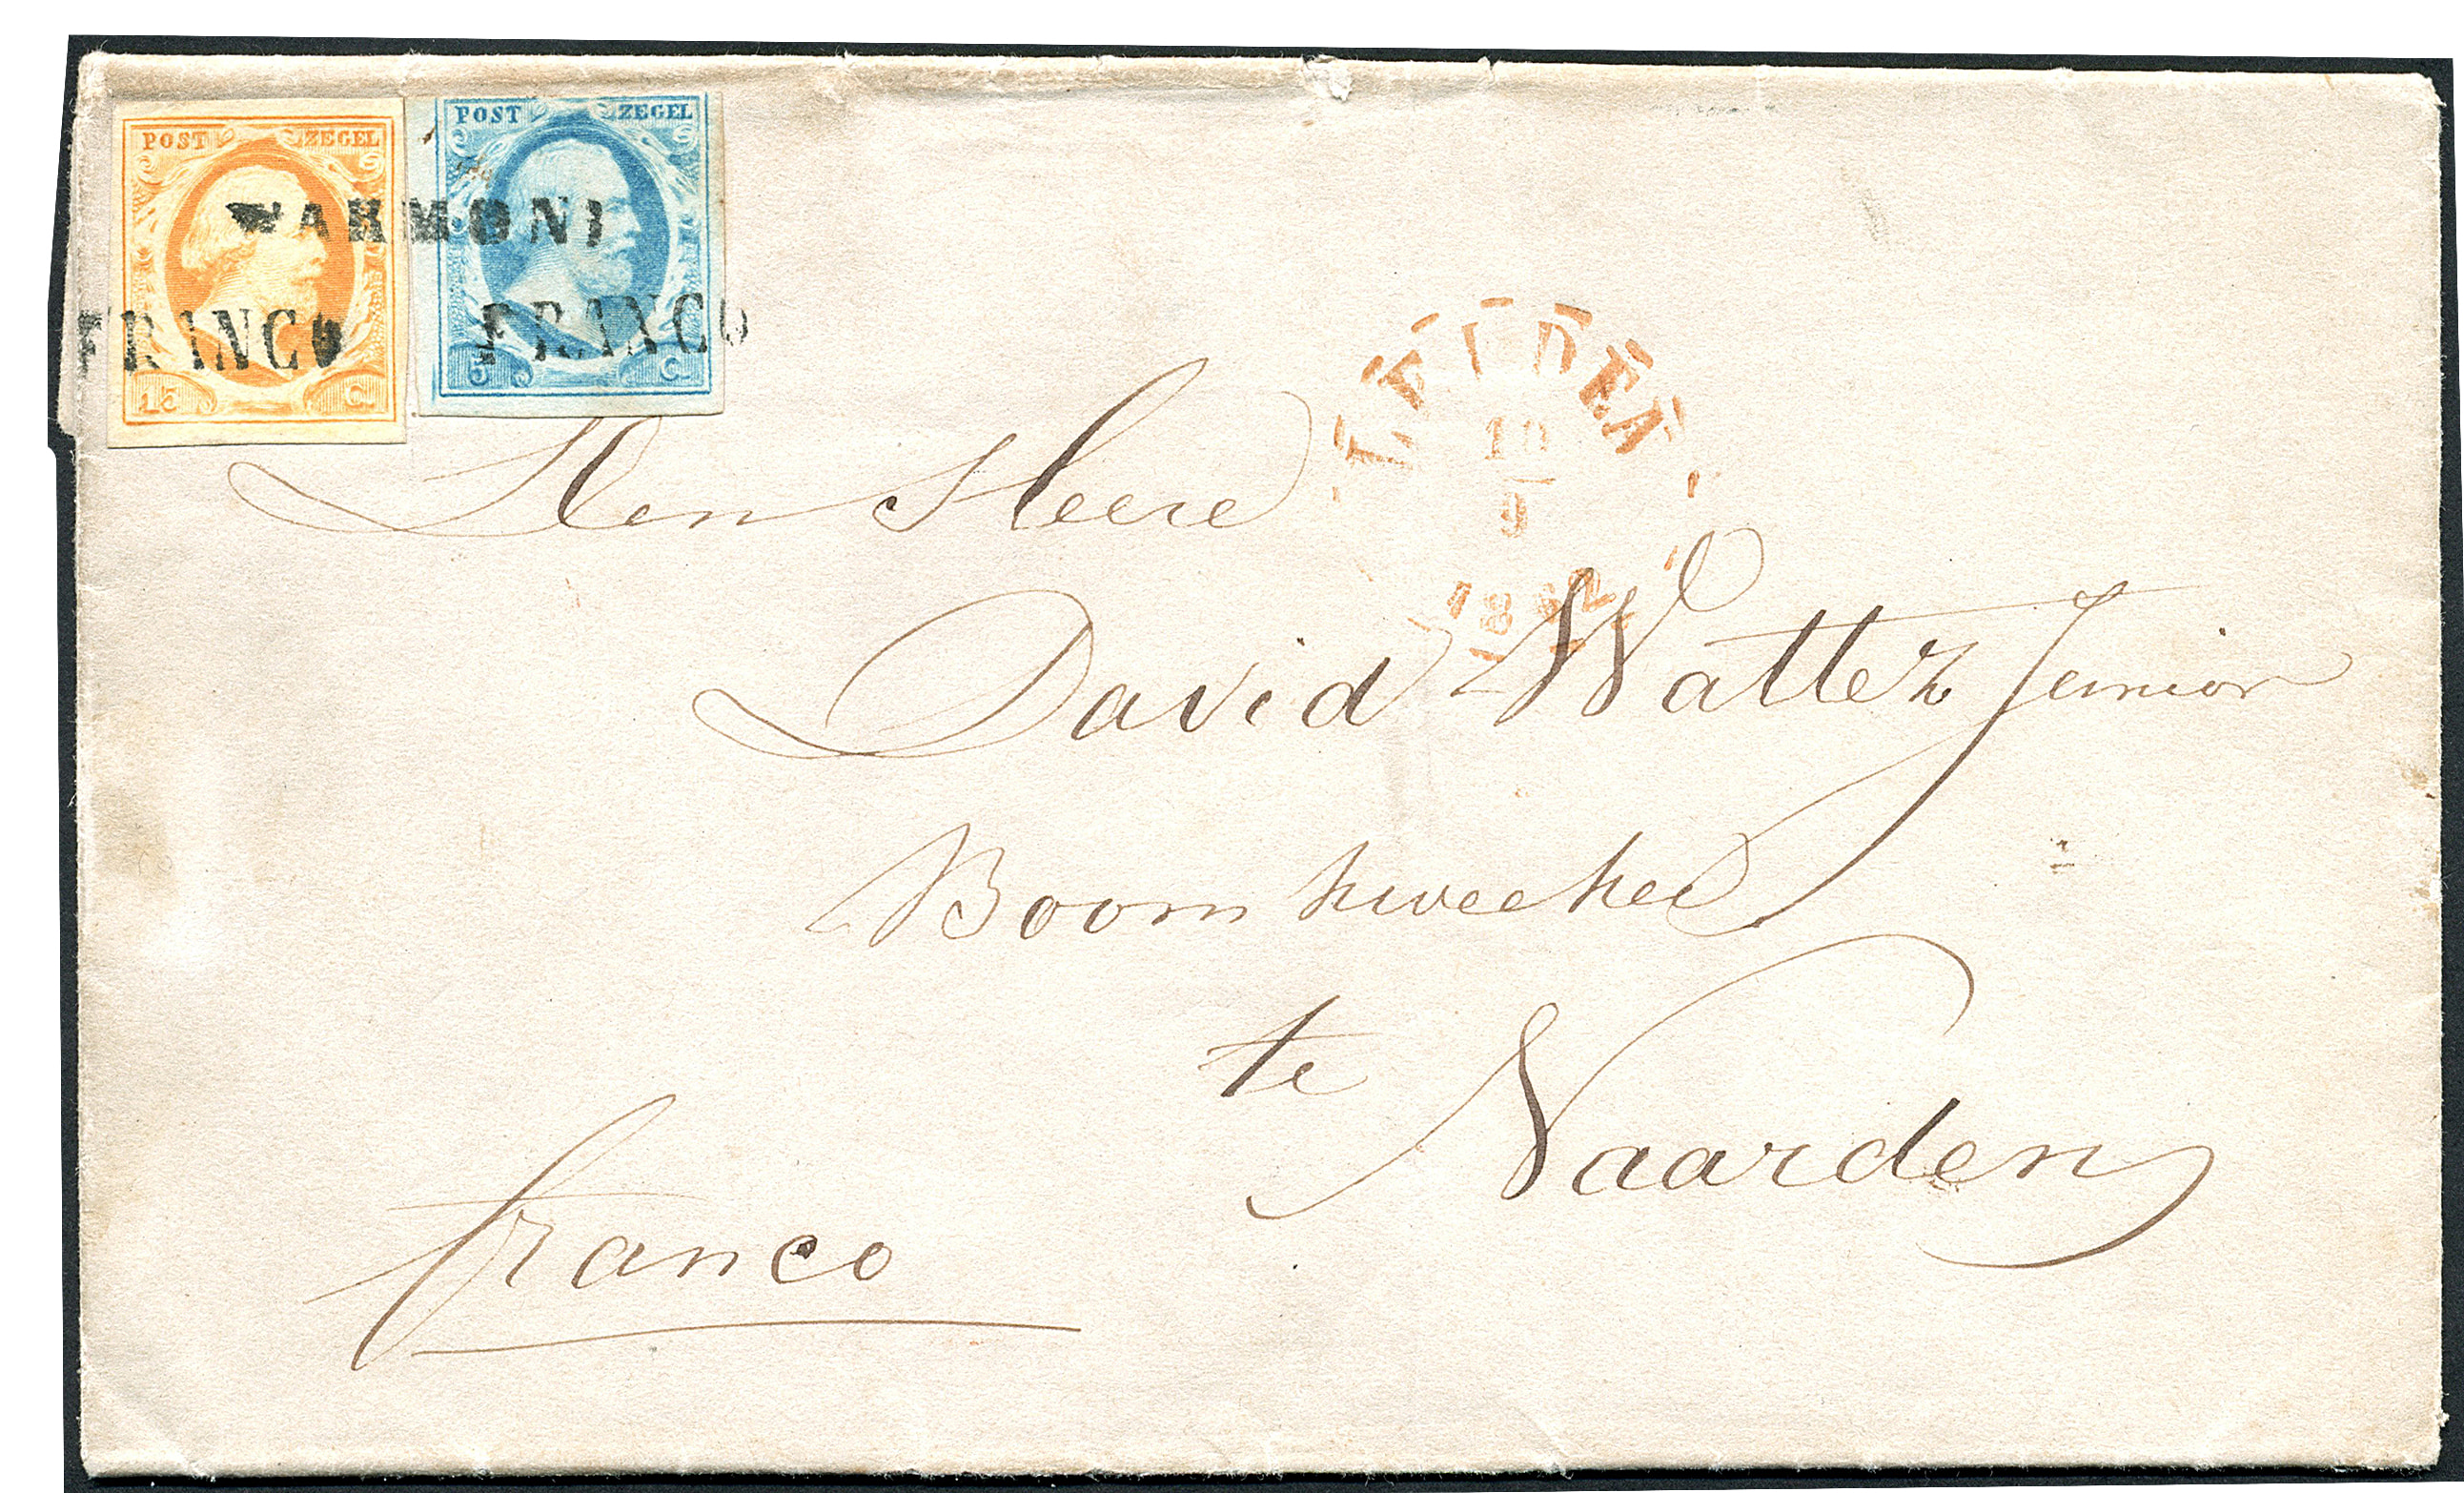 POST ZEGEL
15 C.
POST ZEGEL
5 C.
WARMOND
FRANCO
FRANCO
LEIDEN
10
9
1862
Den Heere
David Wattez Junior
Boomkweeker
te
Naarden
franco